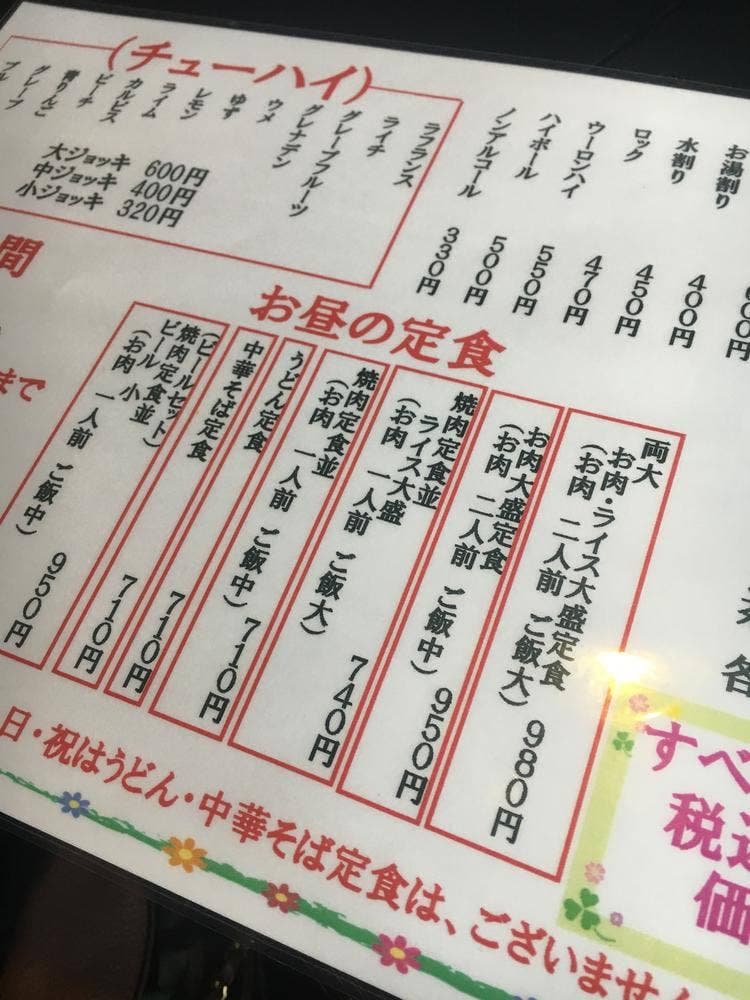 お湯割り 400円
水割り 450円
ロック 470円
ウーロンハイ 550円
ハイボール 500円
ノンアルコール 330円
(チューハイ)
ラフランス
ライチ
グレープフルーツ
グレナデン
ウメ
ゆず
レモン
ライム
カルピス
ピーチ
青りんご
グレープ
大ジョッキ 600円
中ジョッキ 400円
小ジョッキ 320円
間
まで
お昼の定食
両大
お肉・ライス大盛定食
(お肉 二人前 ご飯大) 980円
お肉大盛定食
(お肉 二人前 ご飯中) 950円
焼肉定食並
ライス大盛
(お肉 一人前 ご飯大) 740円
焼肉定食並
(お肉 一人前 ご飯中) 710円
うどん定食 710円
中華そば定食 710円
(ビールセット)
焼肉定食並
ビール 小
(お肉 一人前 ご飯中) 950円
日・祝はうどん・中華そば定食は、ございません
各
すべ
税込
価